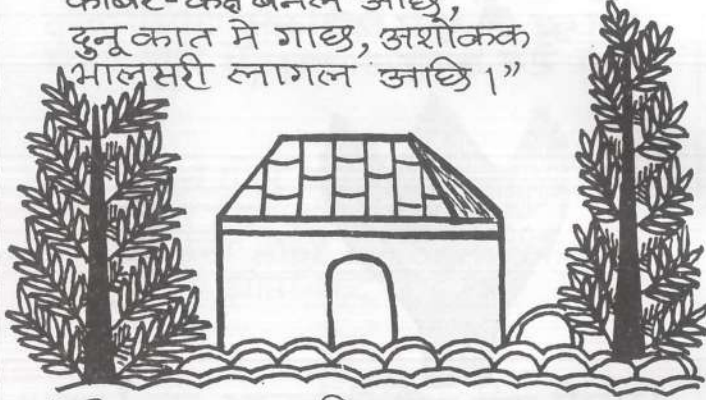 कोबर-कक्ष बनल अछि,
दुनू कात मे गाछ, अशोकक
भालसरी लागल अछि।”